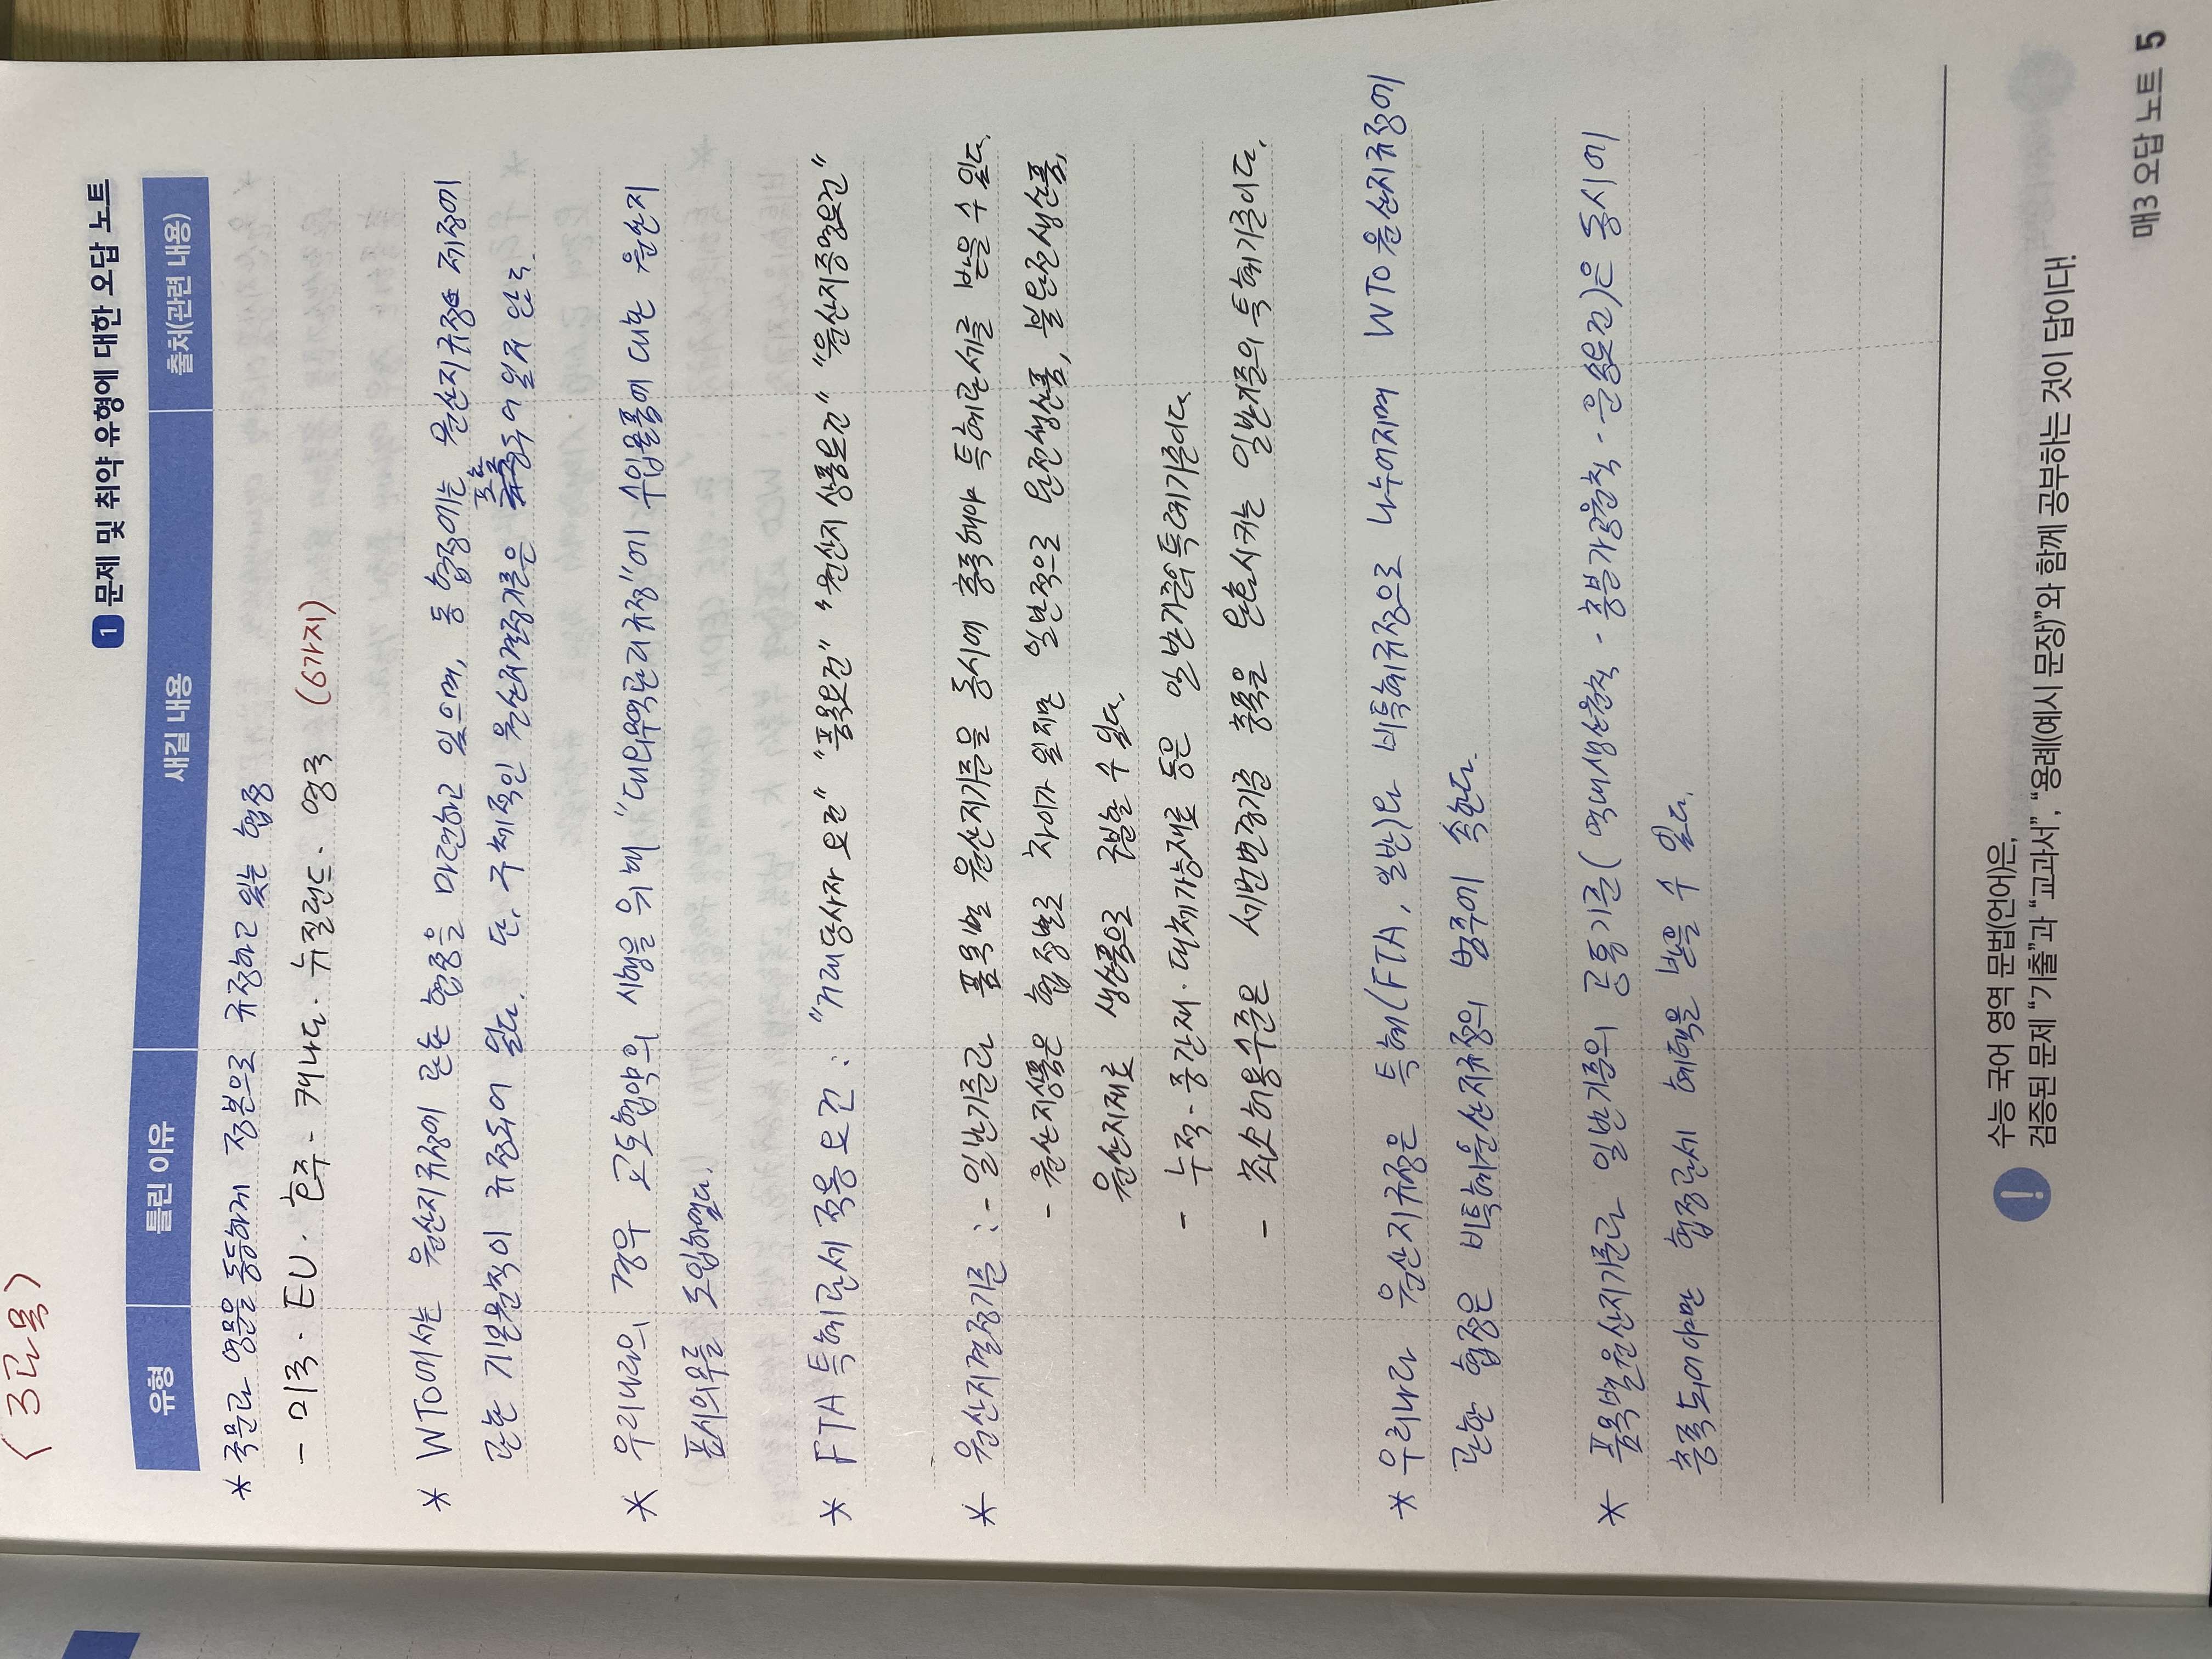 <3과목>
1 문제 및 취약 유형에 대한 오답 노트
유형 틀린 이유 새길 내용 출처(관련 내용)
* 국문과 영문을 동등하게 정본으로 규정하고 있는 협정
- 미국· EU· 호주 - 캐나다· 뉴질랜드· 영국 (6가지)
* WTO에서는 원산지규정에 관한 협정을 마련하고 있으며, 동 협정에는 원산지규정 제정에
관한 기본원칙이 규정되어 있다. 단, 구체적인 원산지결정기준은 포함되어 있지 않다.
* 우리나라의 경우 교토협약의 시행을 위해 "대외무역관리규정"에 수입물품에 대한 원산지
표시의무를 도입하였다.
* FTA 특혜관세 적용요건 : "거래당사자 요건" "품목요건" "원산지 상품요건" "원산지증명요건"
* 원산지결정기준 : - 일반기준과 품목별 원산지기준을 동시에 충족해야 특혜관세를 받을 수 있다.
- 원산지상품은 협정별로 차이가 있지만 일반적으로 완전생산품, 불완전생산품,
원산지재료 생산품으로 구분할 수 있다.
- 누적· 중간재· 대체가능재료 등은 일반기준의 특례기준이다.
- 최소허용수준은 세번변경기준 충족을 완화시키는 일반기준의 특혜기준이다.
* 우리나라 원산지규정은 특혜(FTA, 일반)와 비특혜규정으로 나누어지며 WTO 원산지규정에
관한 협정은 비특혜원산지규정의 범주에 속한다.
* 품목별원산지기준과 일반기준의 공통기준( 역내생산원칙 · 충분가공원칙 · 운송요건)은 동시에
충족되어야만 협정관세 혜택을 받을 수 있다.
! 수능 국어 영역 문법(언어)은,
검증된 문제 “기출”과 “교과서”, “용례(예시 문장)”와 함께 공부하는 것이 답이다!
매3 오답 노트 5